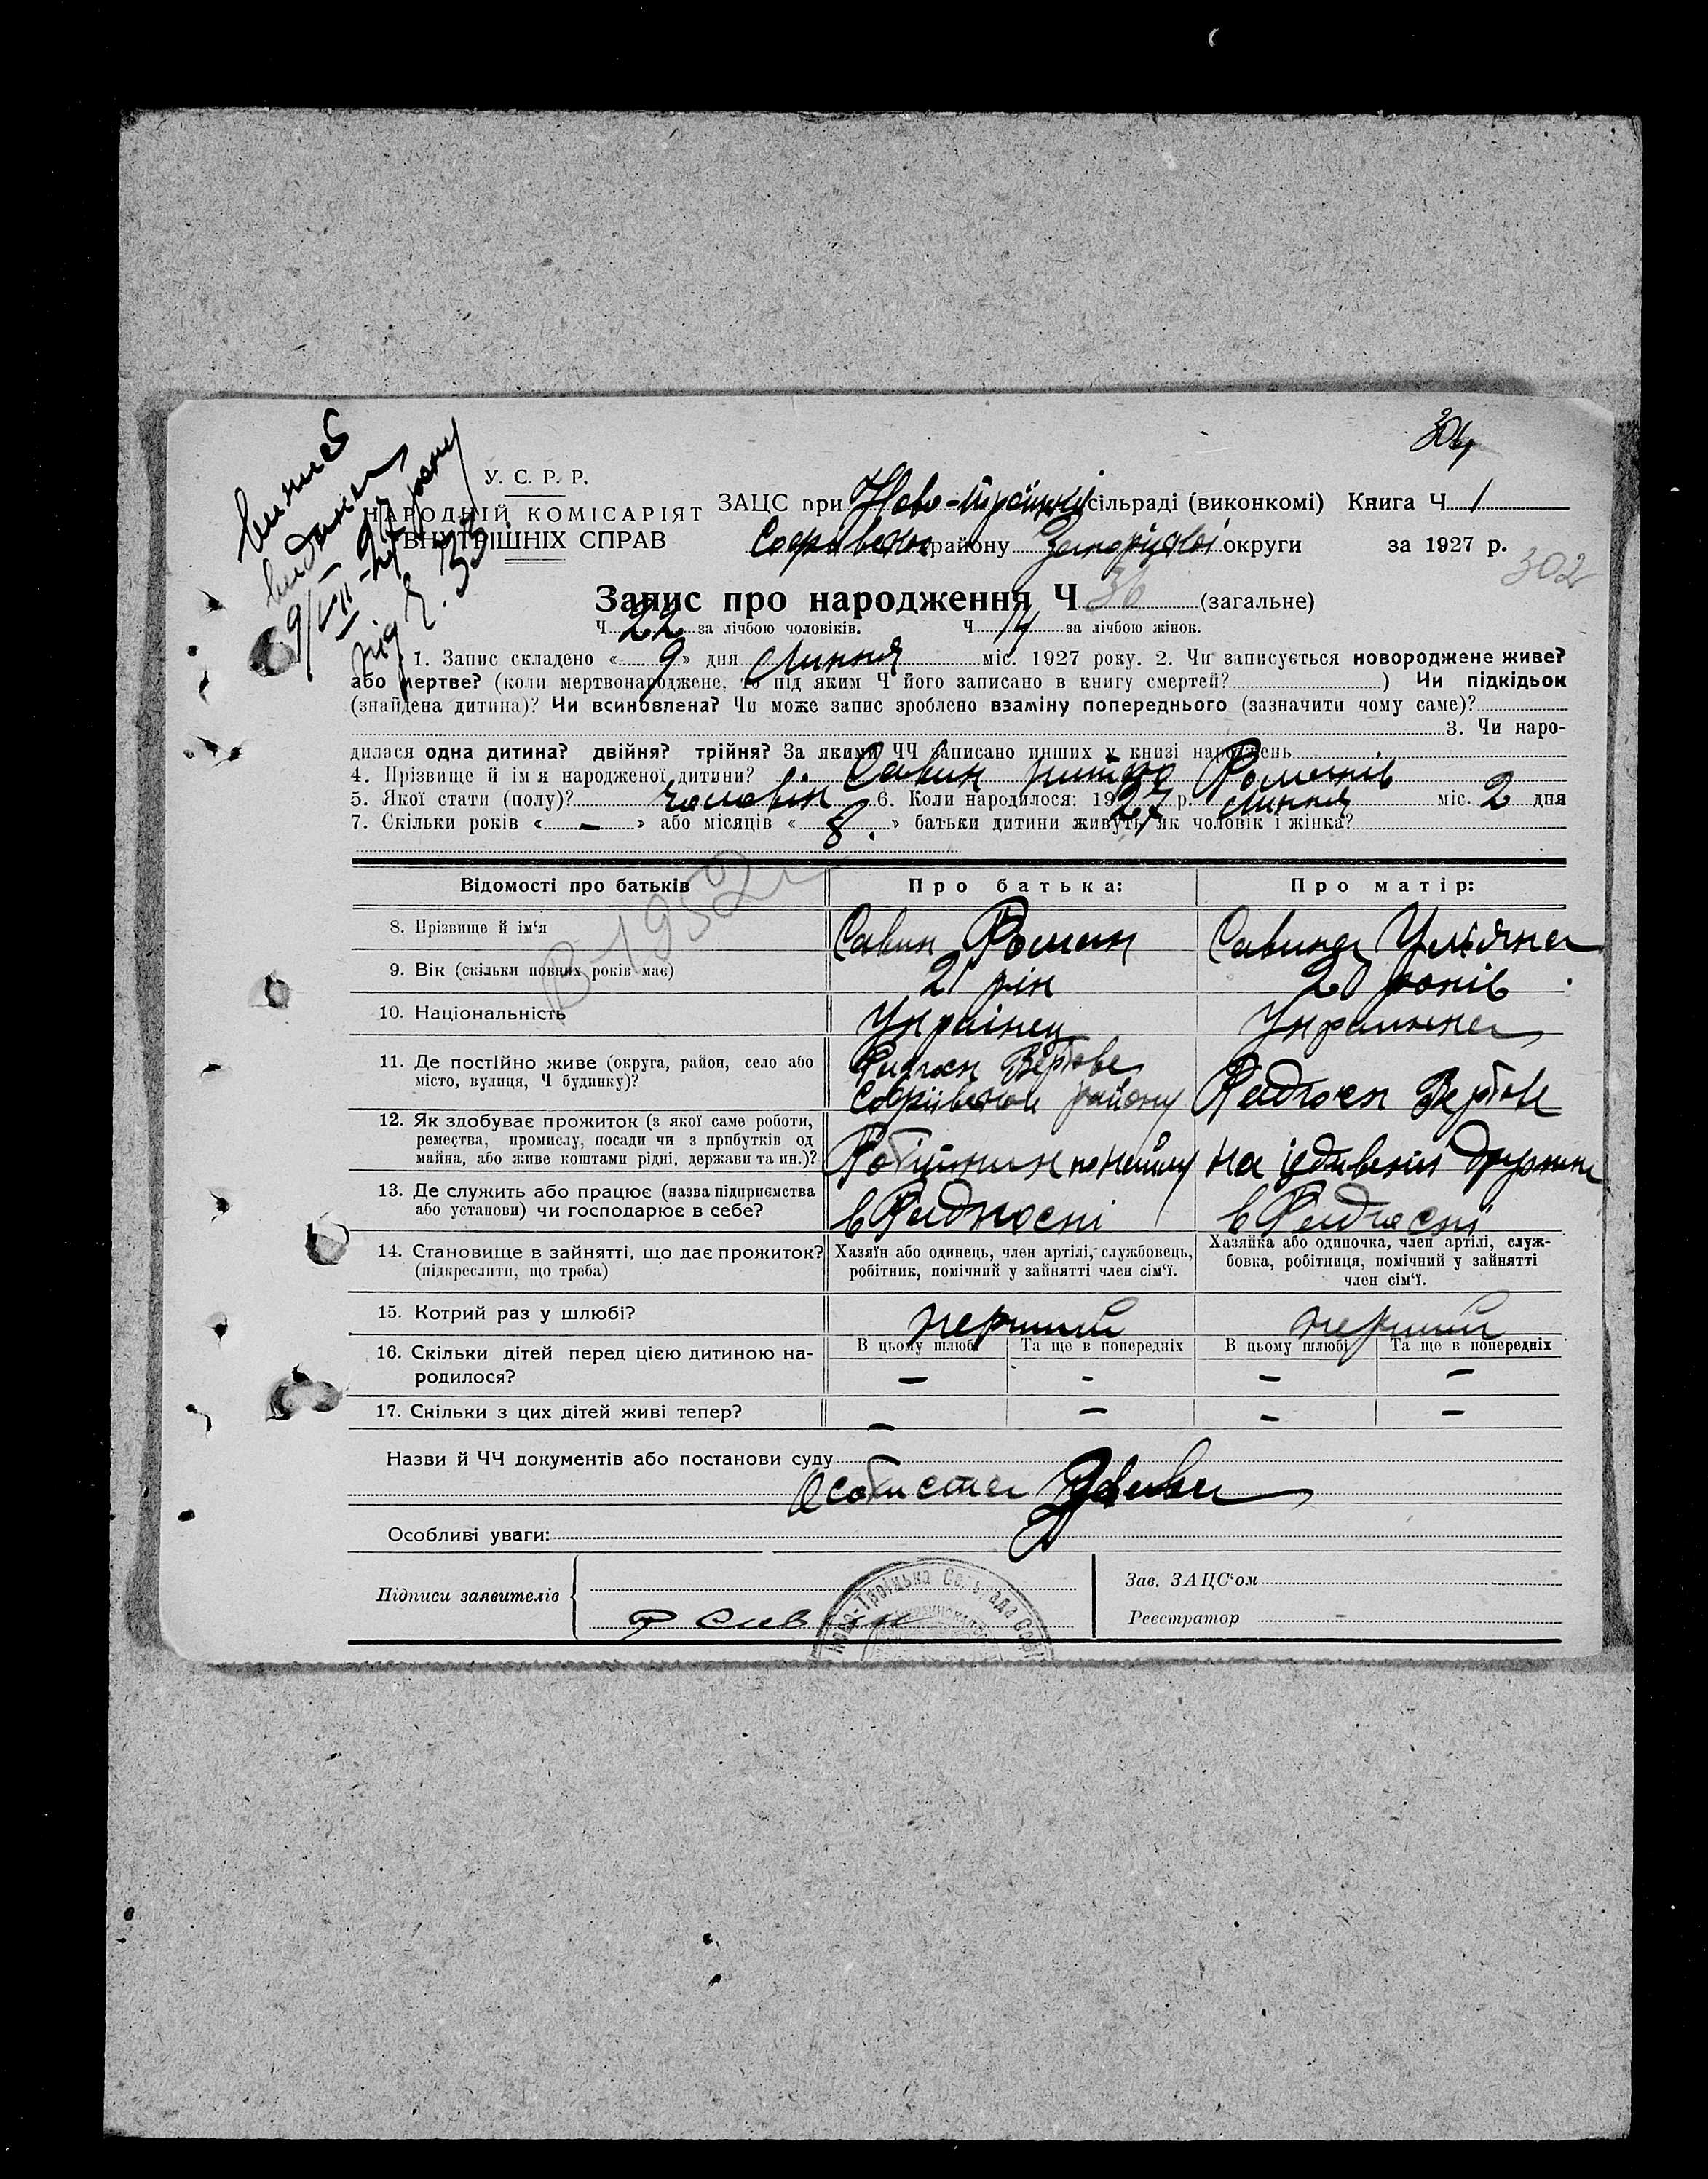 304
витяг
видано
9/VII-27 року
під Ч. 33
У. С. Р. Р.
НАРОДНІЙ КОМІСАРІЯТ
ВНУТРІШНІХ СПРАВ
ЗАЦС при Ново-Троїцькій сільраді (виконкомі) Книга Ч 1
Софіївського району Запорізької округи за 1927 р.
302
Запис про народження Ч 36 (загальне)
Ч 22 за лічбою чоловіків. Ч 14 за лічбою жінок.
1. Запис складено « 9 » дня Липня міс. 1927 року. 2. Чи записується новороджене живе?
або мертве? (коли мертвонароджене, то під яким Ч його записано в книгу смертей? ) Чи підкідьок
(знайдена дитина)? Чи всиновлена? Чи може запис зроблено взаміну попереднього (зазначити чому саме)?
3. Чи наро-
дилася одна дитина? двійня? трійня? За якими ЧЧ записано инших у книзі народжень
4. Прізвище й ім'я народженої дитини? Савин Романів
5. Якої стати (полу)? чоловік 6. Коли народилося: 1927 р. Липня міс. 2 дня
7. Скільки років « — » або місяців « 8. » батьки дитини живуть як чоловік і жінка?
В-1952
Відомості про батьків Про батька: Про матір:
8. Прізвище й ім'я Савин Роман Савина Уліяна
9. Вік (скільки повних років має) 21 рік 20 років
10. Національність Українец Украинка
11. Де постійно живе (округа, район, село або
місто, вулиця, Ч будинку)? Радгосп Вербове
Софіївського району Радгосп Вербове
12. Як здобуває прожиток (з якої саме роботи,
ремества, промислу, посади чи з прибутків од
майна, або живе коштами рідні, держави та ин.)? Робітник по найму на іждивенії
13. Де служить або працює (назва підприємства
або установи) чи господарює в себе? в Радгоспі в Радгоспі
14. Становище в зайнятті, що дає прожиток?
(підкреслити, що треба)
Хазяїн або одинець, член артілі, службовець,
робітник, помічний у зайнятті член сім'ї.
Хазяйка або одиночка, член артілі, служ-
бовка, робітниця, помічний у зайнятті
член сім'ї.
15. Котрий раз у шлюбі? перший перший
В цьому шлюбі Та ще в попередніх В цьому шлюбі Та ще в попередніх
16. Скільки дітей перед цією дитиною на-
родилося? — - — —
17. Скільки з цих дітей живі тепер? — — — —
Назви й ЧЧ документів або постанови суду
Особиста заява
Особливі уваги:
Підписи заявителів
Р Савин
Зав. ЗАЦС'ом
Реєстратор
Ново-Троїцька Сільрада